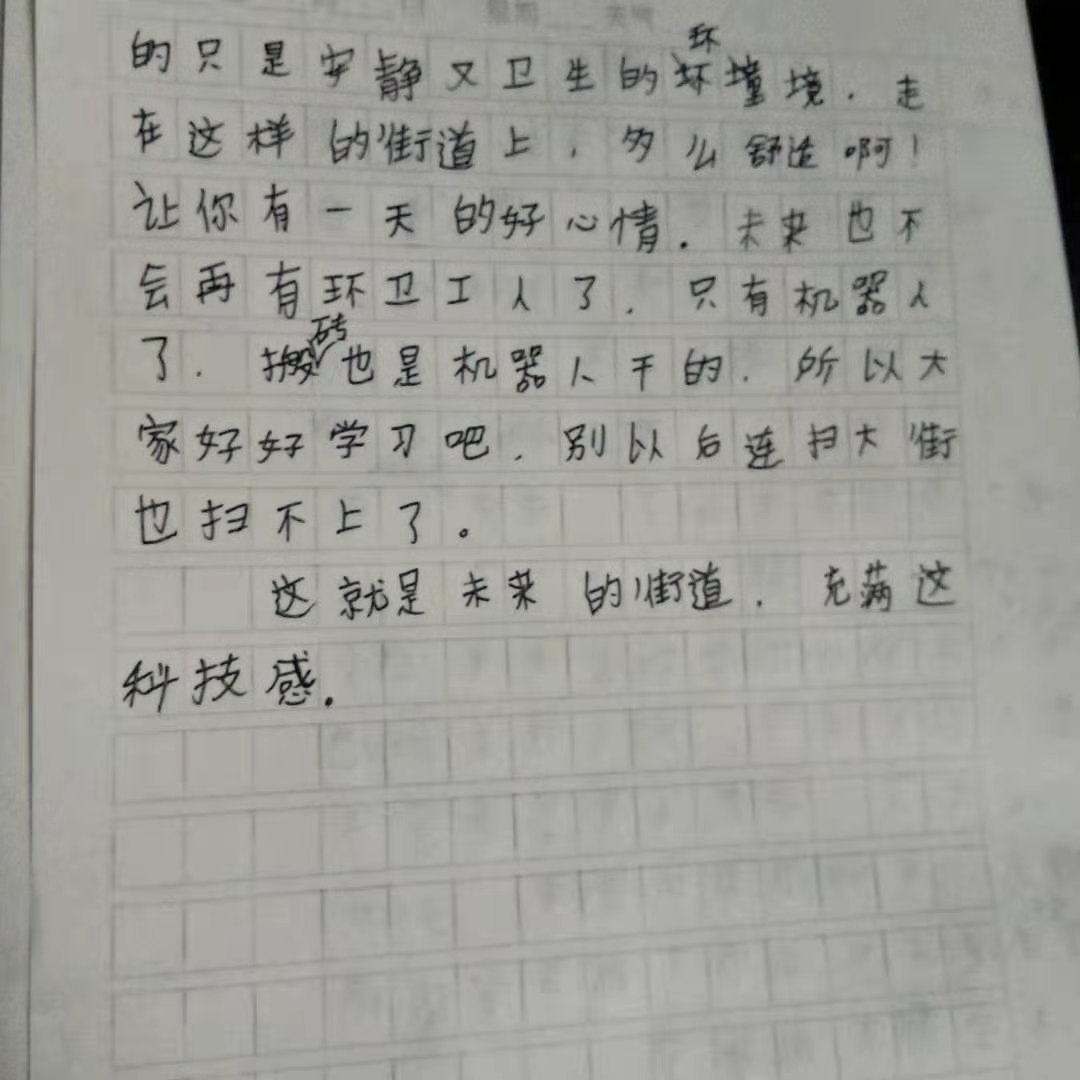 的只是安静又卫生的环境. 走
在这样的街道上, 多么舒适啊!
让你有一天的好心情. 未来也不
会再有环卫工人了. 只有机器人
了. 搬砖也是机器人干的. 所以大
家好好学习吧. 别以后连扫大街
也扫不上了。
这就是未来的街道. 充满这
科技感.